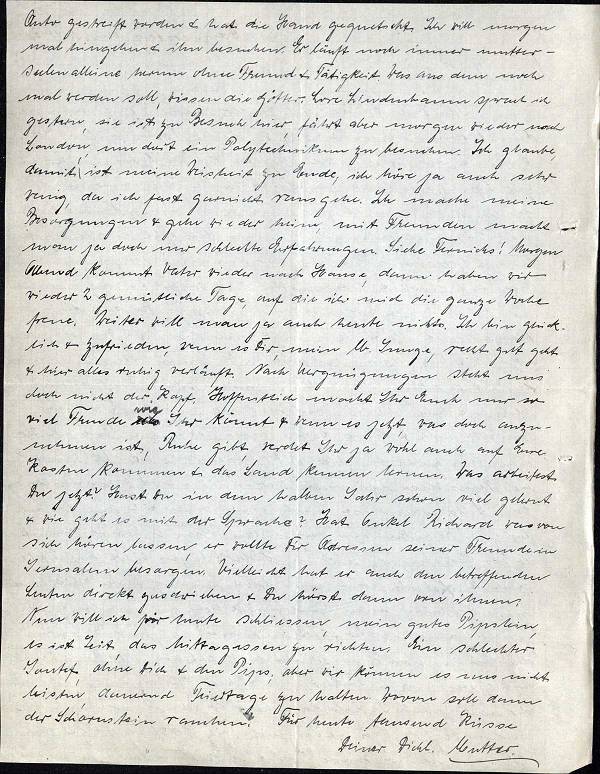 Auto gestreift worden & hat die Hand gequetscht. Ich will morgen
mal hingehen & ihn besuchen. Er läuft noch immer mutter-
seelenalleine herum ohne Freund & Tätigkeit. Was aus dem noch
mal werden soll, wissen die Götter. Lore Lindenbaum sprach ich
gestern, sie ist zu Besuch hier, fährt aber morgen wieder nach
London, um dort ein Polytechnikum zu besuchen. Ich glaube,
damit ist meine Weisheit zu Ende, ich höre ja auch sehr
wenig, da ich fast garnicht rausgehe. Ich mache meine
Besorgungen & gehe wieder heim, mit Freunden macht
man ja doch nur schlechte Erfahrungen. Siehe! Morgen
Abend kommt Vater wieder nach Hause, dann haben wir
wieder 2 gemütliche Tage, auf die ich mich die ganze Woche
freue. Weiter will man ja auch heute nichts. Ich bin glück-
lich & zufrieden, wenn es Dir, mein lb. Junge, recht gut geht
& hier alles ruhig verläuft. Nach Vergnügungen steht uns
doch nicht der Kopf. Hoffentlich macht Ihr Euch nur so
viel Freude wie Ihr könnt & wenn es jetzt, was doch anzu-
nehmen ist, Ruhe gibt, werdet Ihr ja wohl auch auf Eure
Kosten kommen & das Land kennen lernen. Was arbeitest
Du jetzt? Hast Du in dem halben Jahr schon viel gelernt
& wie geht es mit der Sprache? Hat Onkel Richard was von
sich hören lassen, er wollte Dir Adressen seiner Freunde in
Jerusalem besorgen. Vielleicht hat er auch den betreffenden
Leuten direkt geschrieben & Du hörst dann von ihnen.
Nun will ich für heute schliessen, mein gutes Pipslein,
es ist Zeit das Mittagessen zu richten. Ein schlechter
Jontef, ohne Dich & den Pips, aber wir können es uns nicht
leisten dauernd Feiertage zu halten. Wovon soll dann
der Schornstein rauchen. Für heute tausend Küsse
Deiner Dichl. Mutter.